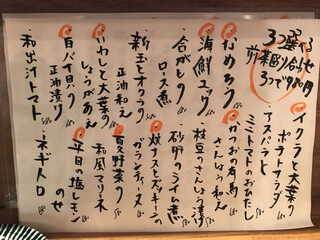 3つ選べる
前菜盛り合わせ
3つで980円
イクラと大葉の
ポテトサラダ
アスパラと
ミニトマトのおひたし
かつおの有馬
さんしょう和え
枝豆のさんしょう漬け
砂肝のライム煮
炊ナスとズッキーニの
ガランティーヌ
夏野菜の
和風マリネ
平目の塩レモン
のせ
ネギトロ
なめろう
海鮮ユッケ
合がもの
ロース煮
新玉とオクラの
正油和え
いわしと大葉の
しょうがあえ
白バイ貝の
正油漬け
和出汁トマト